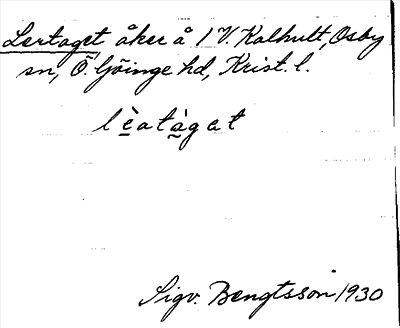 Lertaget, åker å 1 V. Kalhult, Osby
sn, Ö. Göinge hd, Krist. l.
lèatàgat
Sigv. Bengtsson 1930